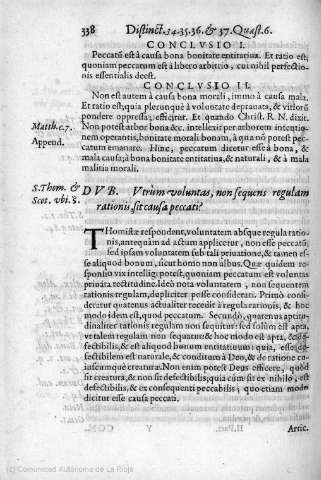 338 Distinct. 34.35.36. & 37. Quæst. 6.
CONCLVSIO I.
Peccatũ est à causa bona bonitate entitatiua. Et ratio est,
quoniam peccatum est à libero arbitrio, cui nihil perfectio-
nis essentialis deest.
CONCLVSIO II.
Non est autem à causa bona morali, immo à causa mala.
Et ratio est, quia plerunq; à voluntate deprauata, & vitiorũ
pondere oppressa, efficitur. Et quando Christ. R. N. dixit.
Matth. c. 7.
Non potest arbor bona &c. intellexit per arborem intentio-
nem operantis, bonitate morali bonam, à qua nõ potest pec-
Append.
catum emanare. Hinc, peccatum dicetur esse à bona, &
mala causa; à bona bonitate entitatiua, & naturali, & à mala
malitia morali.
S. Thom. &
Scot. vbi. s.
DVB. Vtrùm voluntas, non sequens regulam
rationis, sit causa peccati?
THomistæ respondent, voluntatem absque regula ratio-
nis, antequàm ad actum applicetur, non esse peccatũ;
sed ipsam voluntatem sub tali priuatione, & tamen es-
se aliquod bonum, sicut homo non albus. Quæ quidem re-
sponsio vix intelligi potest, quoniam peccatum est voluntas
priuata rectitudine. Ideò nota voluntatem, non sequentem
rationis regulam, dupliciter posse considerari. Primò consi-
deretur quatenus actualiter recedit à regula rationis, & hoc
modo idem est, quod peccatum. Secundò, quatenus aptitu-
dinaliter rationis regulam non sequitur: sed solùm est apta,
vt talem regulam non sequatur: & hoc modo est apta, & de-
fectibilis, & est aliquod bonum entitatiuum: quia, esse de-
fectibilem est naturale, & conditum à Deo, & de ratione cu-
iuscumque creaturæ. Non enim potest Deus efficere, quòd
sit creatura, & non sit defectibilis, quia cùm sit ex nihilo, est
defectibilis, & ex consequenti peccabilis; quo etiam modo
dicitur esse causa peccati.
II. Part. Y Artic.
(c) Comunidad Autónoma de La Rioja